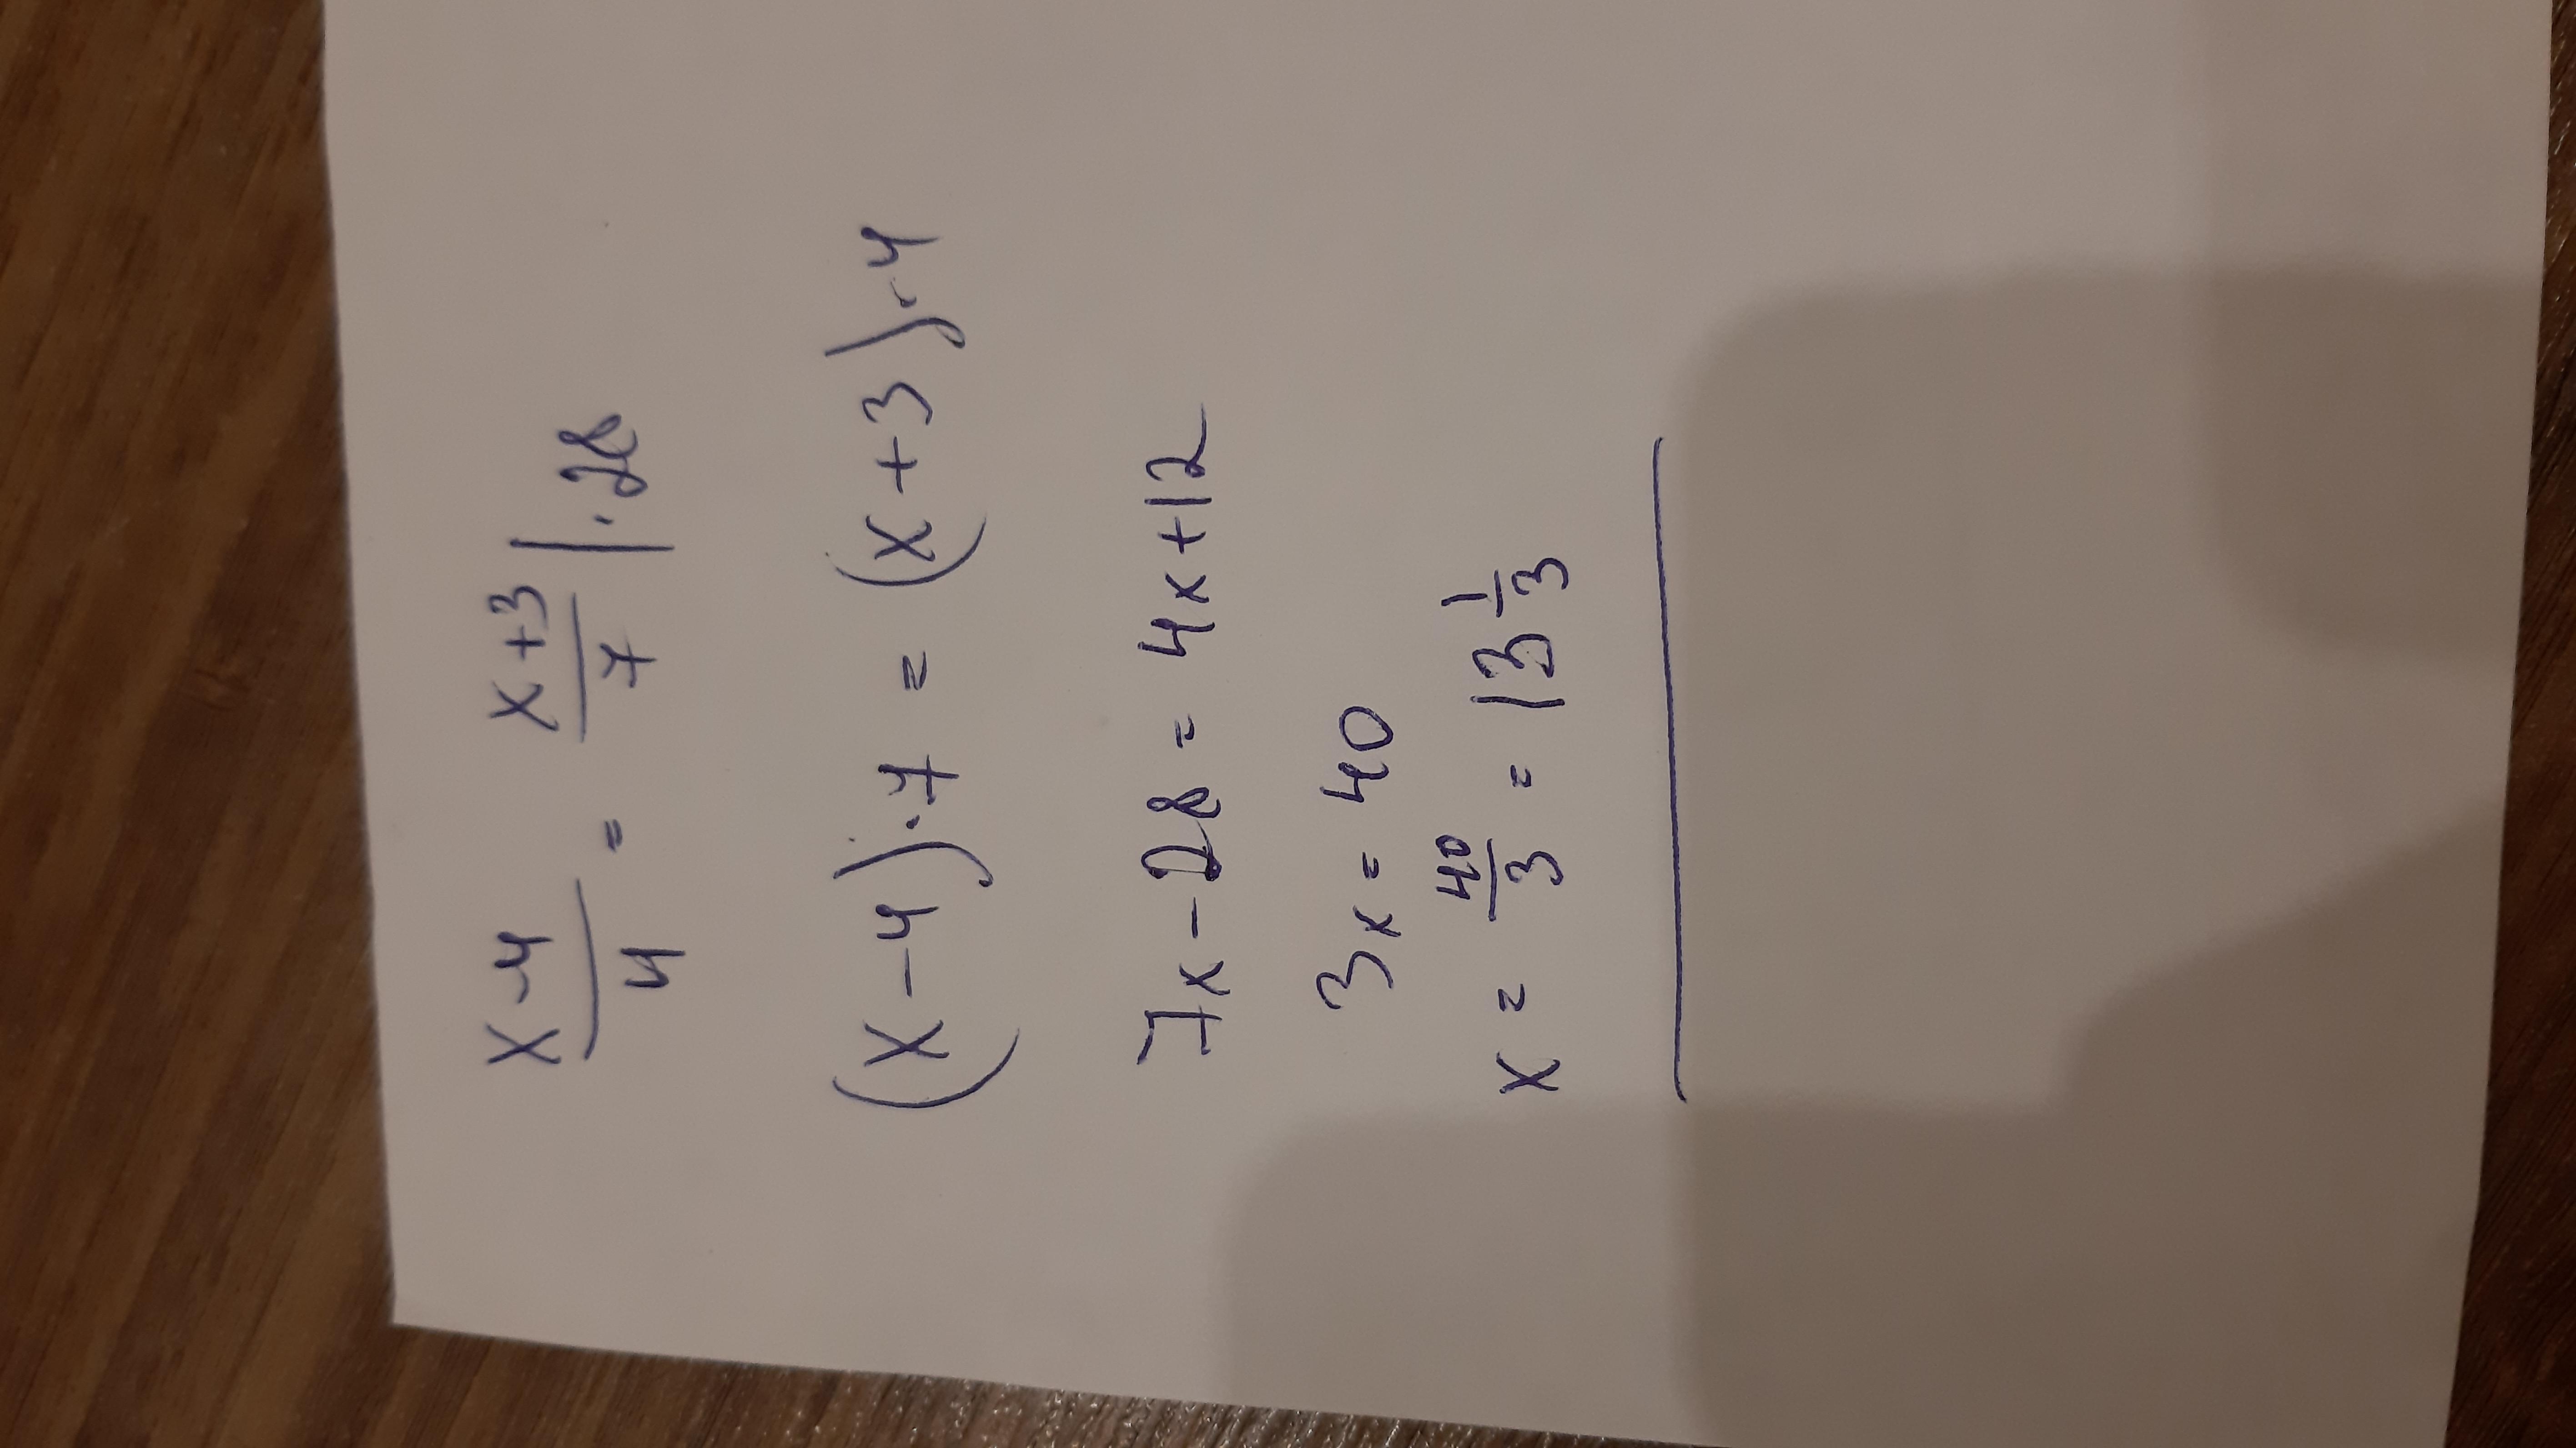 x-4/4 = x+3/7 |·28
(x-4)·7 = (x+3)·4
7x-28 = 4x+12
3x = 40
x = 40/3 = 13 1/3